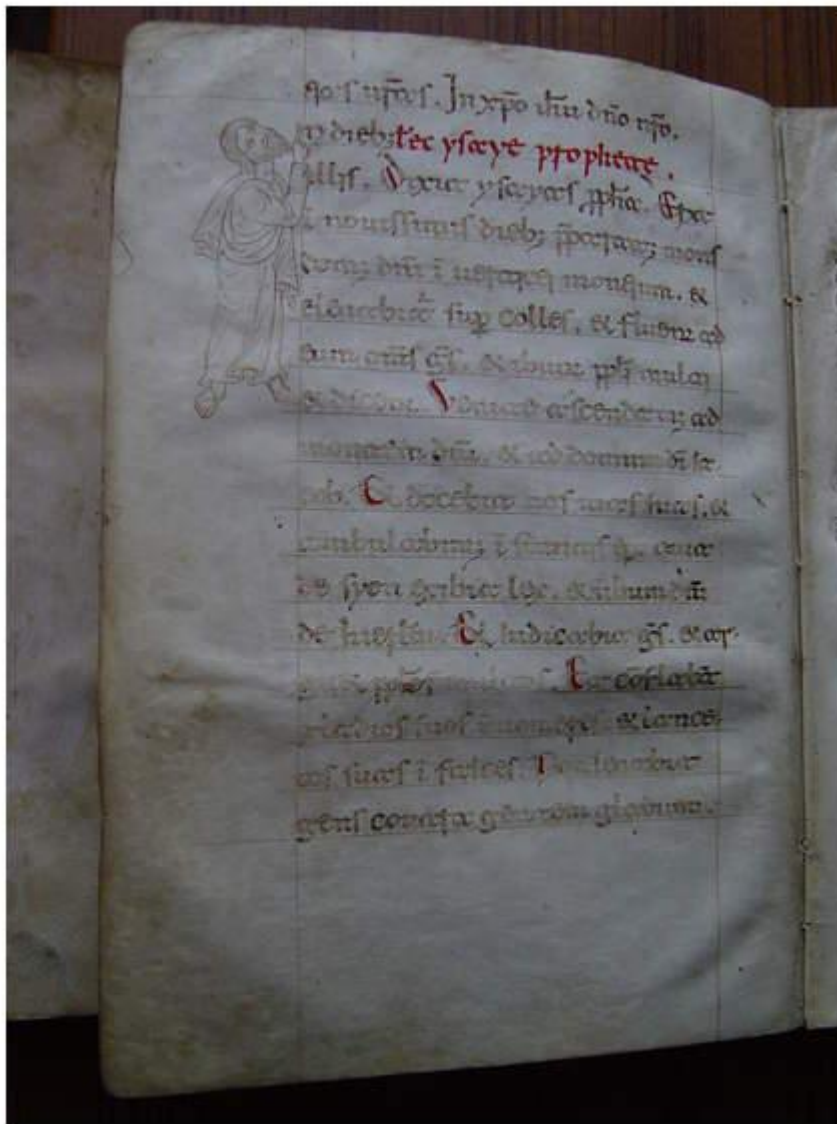 Jn xp̄o ih̄u dn̄o nr̄o.
dieb; lec ysaye prophete.
illis. Dixit ysayas ꝓph̄a. Erit
ī nouissimis dieb; p̄paratus mons
domus dn̄i ī uertice montium. &
eleuabit̄ sup colles. & fluent ad
eum om̄s gn̄s. & ibunt pp̄li multi
& dicent. Venite ascendam; ad
montem dn̄i. & ad domum dī ia
cob. Et docebit nos uias suas. &
ambulabim; ī semitis ei;. quia
de syon exibit lex. & uerbum dn̄i
de ih̄erl̄m. Et iudicabit gn̄s. & ar
guet pp̄los multos. Et cōflabūt
gladios suos ī uomeres. & lance
as suas ī falces. Non leuabit
gens contra gentem gladium.